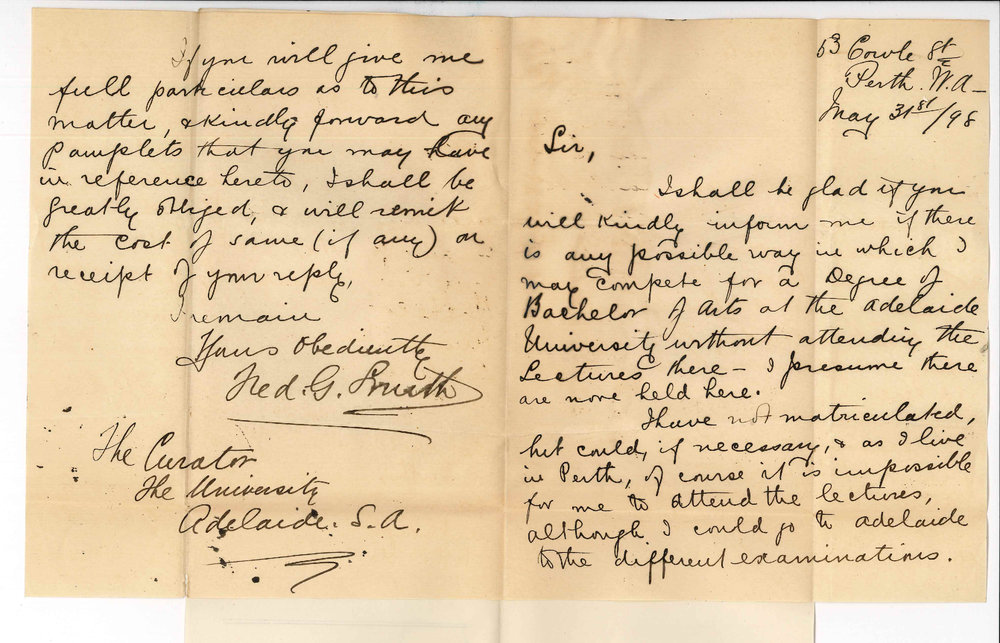 63 Cowle St
Perth. W.A-
May 31st/98
Sir,
I shall be glad if you
will kindly inform me if there
is any possible way in which I
may compete for a Degree of
Bachelor of Arts at the Adelaide
University without attending the
Lectures there - I presume there
are none held here.
I have not matriculated,
but could, if necessary, & as I live
in Perth, of course it is impossible
for me to attend the lectures,
although I could go to Adelaide
to the different examinations.
If you will give me
full particulars as to this
matter, & kindly forward any
Pamplets that you may have
in reference hereto, I shall be
greatly obliged, & will remit
the cost of same (if any) on
receipt of your reply,
I remain
Yours Obediently
Fred. G. Smith
The Curator
The University
Adelaide. S.A.